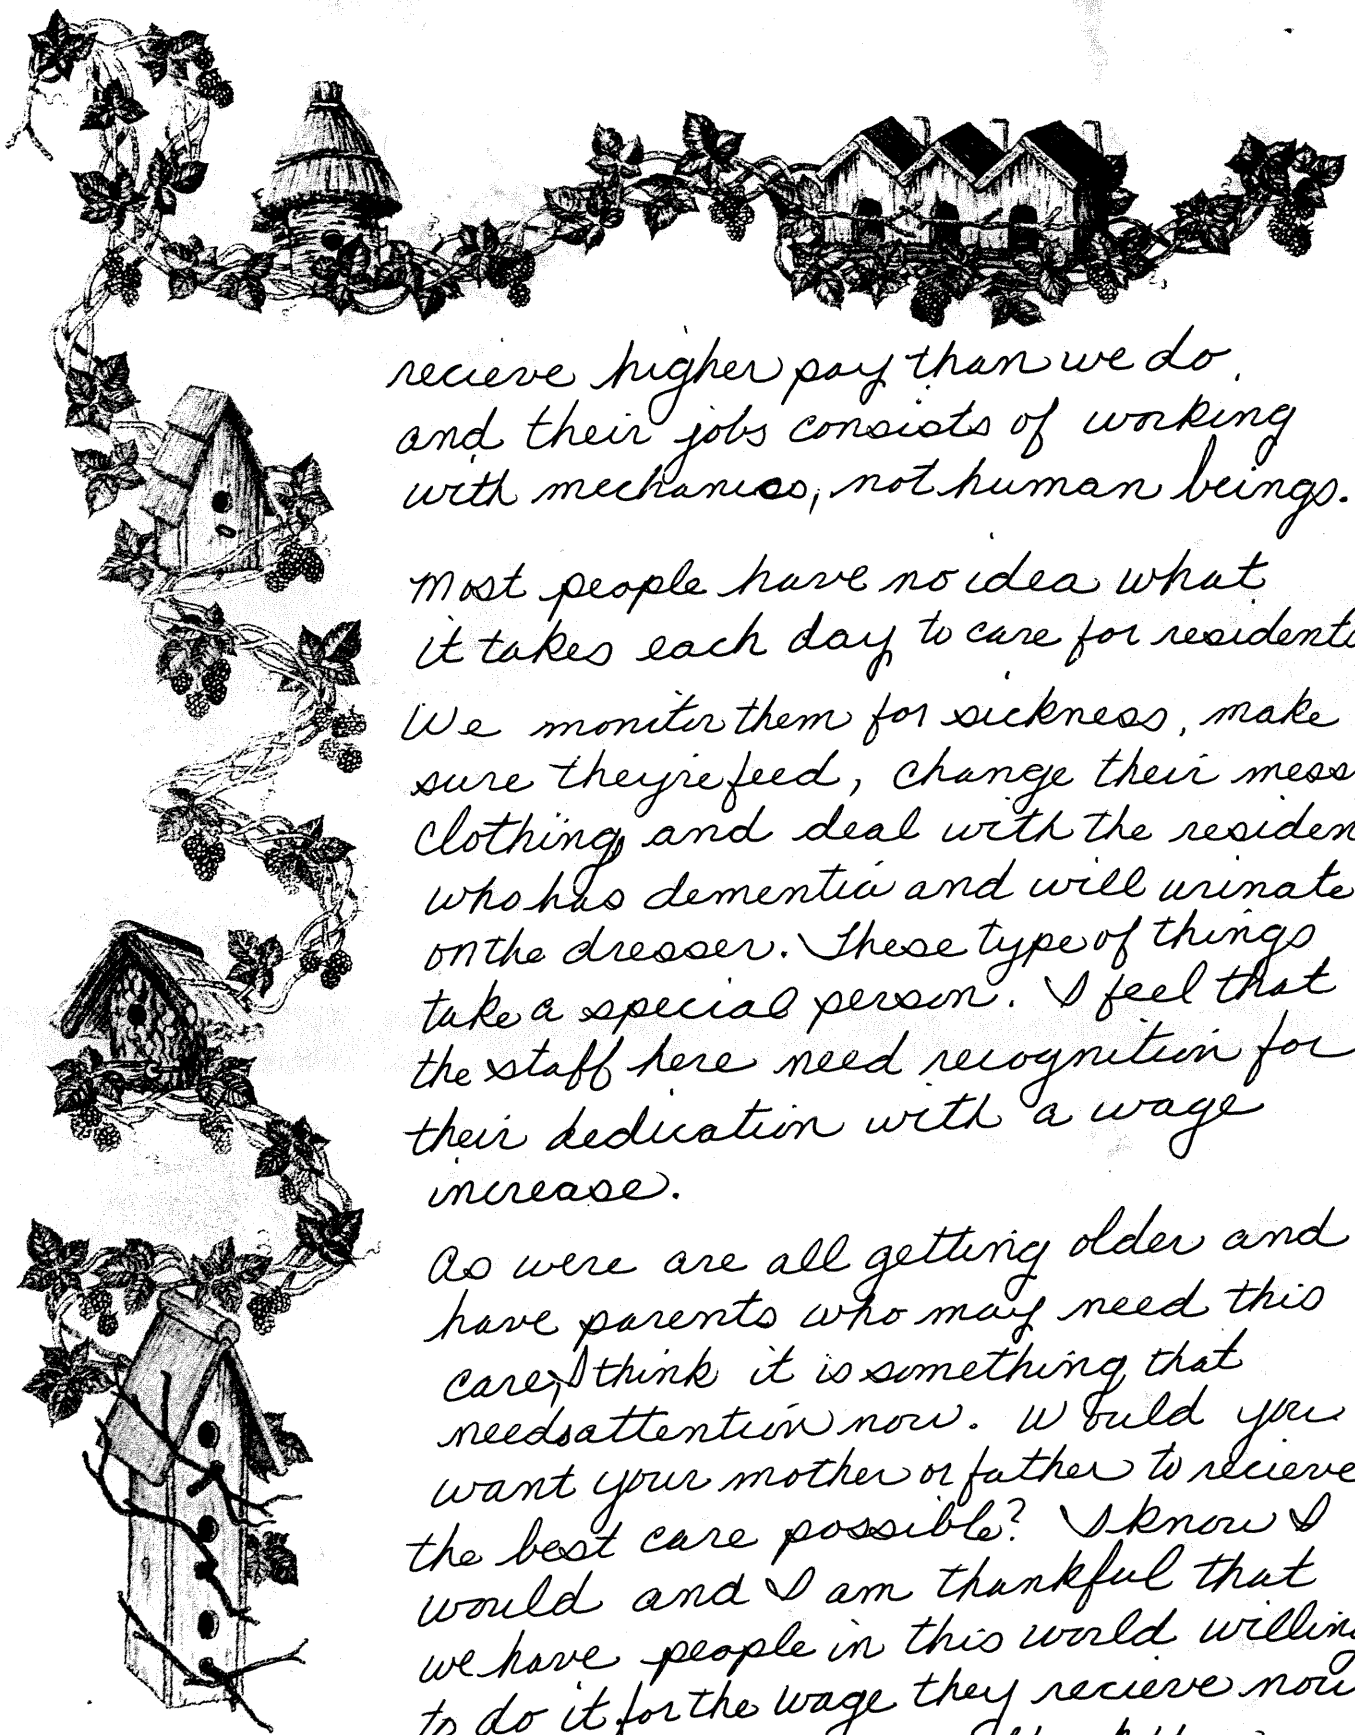 recieve higher pay than we do,
and their jobs consists of working
with mechanics, not human beings.
Most people have no idea what
it takes each day to care for residents
We monitor them for sickness, make
sure they're feed, change their mess
clothing, and deal with the residen
who has dementia and will urinate
on the dresser. These type of things
take a special person. I feel that
the staff here need recognition for
their dedication with a wage
increase.
As were are all getting older and
have parents who may need this
care, I think it is something that
needs attention now. Would you
want your mother or father to recieve
the best care possible? I know I
would and I am thankful that
we have people in this world willing
to do it for the wage they recieve now